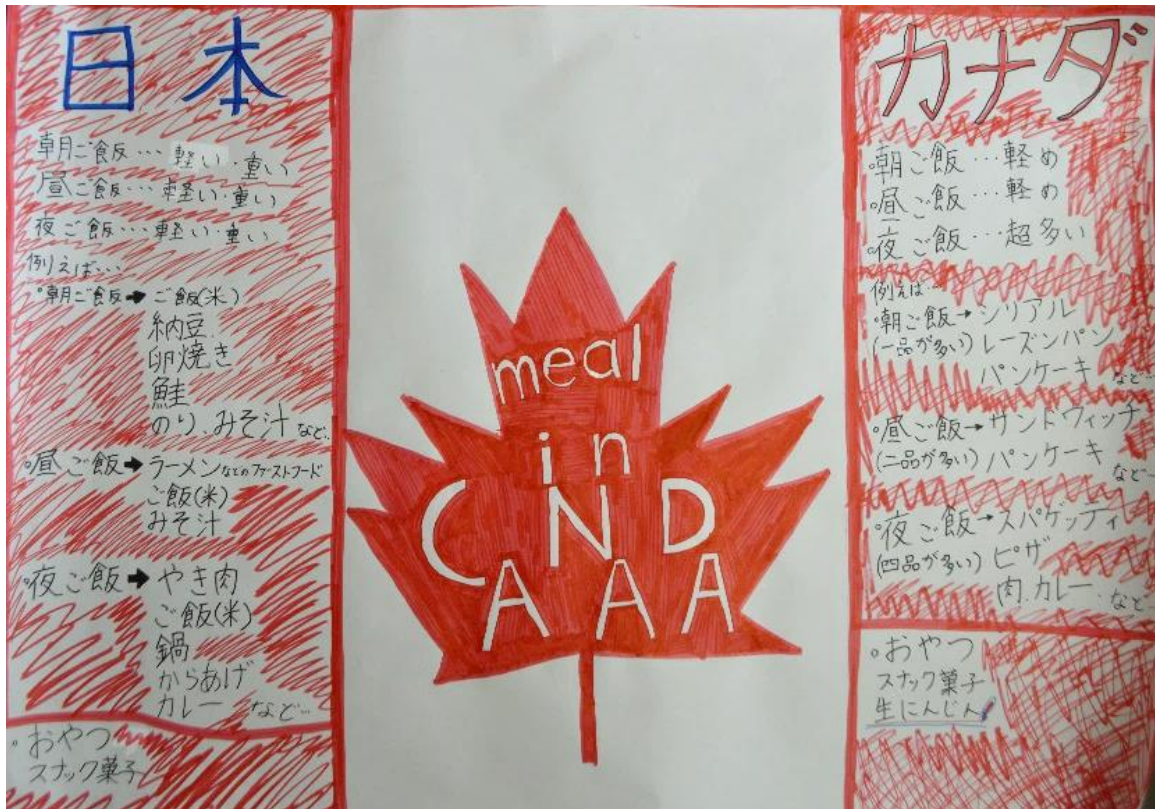 日本
朝ご飯…軽い・重い
昼ご飯…軽い・重い
夜ご飯…軽い・重い
例えば…
°朝ご飯➡ご飯(米)
納豆
卵焼き
鮭
のり、みそ汁など…
°昼ご飯➡ラーメンなどのファーストフード
ご飯(米)
みそ汁
°夜ご飯➡やき肉
ご飯(米)
鍋
からあげ
カレー など…
°おやつ
スナック菓子
meal
in
CANADA
カナダ
°朝ご飯…軽め
°昼ご飯…軽め
°夜ご飯…超多い
例えば…
°朝ご飯→シリアル
(一品が多い)レーズンパン
パンケーキ など…
°昼ご飯→サンドウィッチ
(二品が多い)パンケーキ
など…
°夜ご飯→スパゲッティ
(四品が多い)ピザ
肉、カレー、など…
°おやつ
スナック菓子
生にんじん